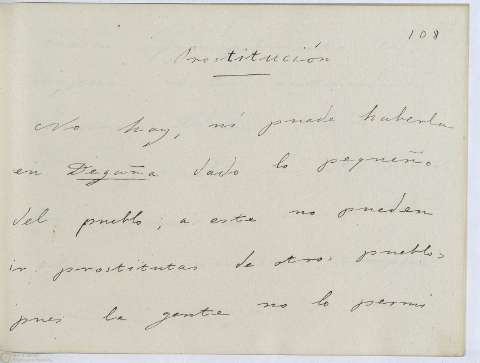 108
Prostitución
No hay, ni puede haberla
en Degaña dado lo pequeño
del pueblo; a este no pueden
ir prostitutas de otros pueblos
pues la gente no lo permi